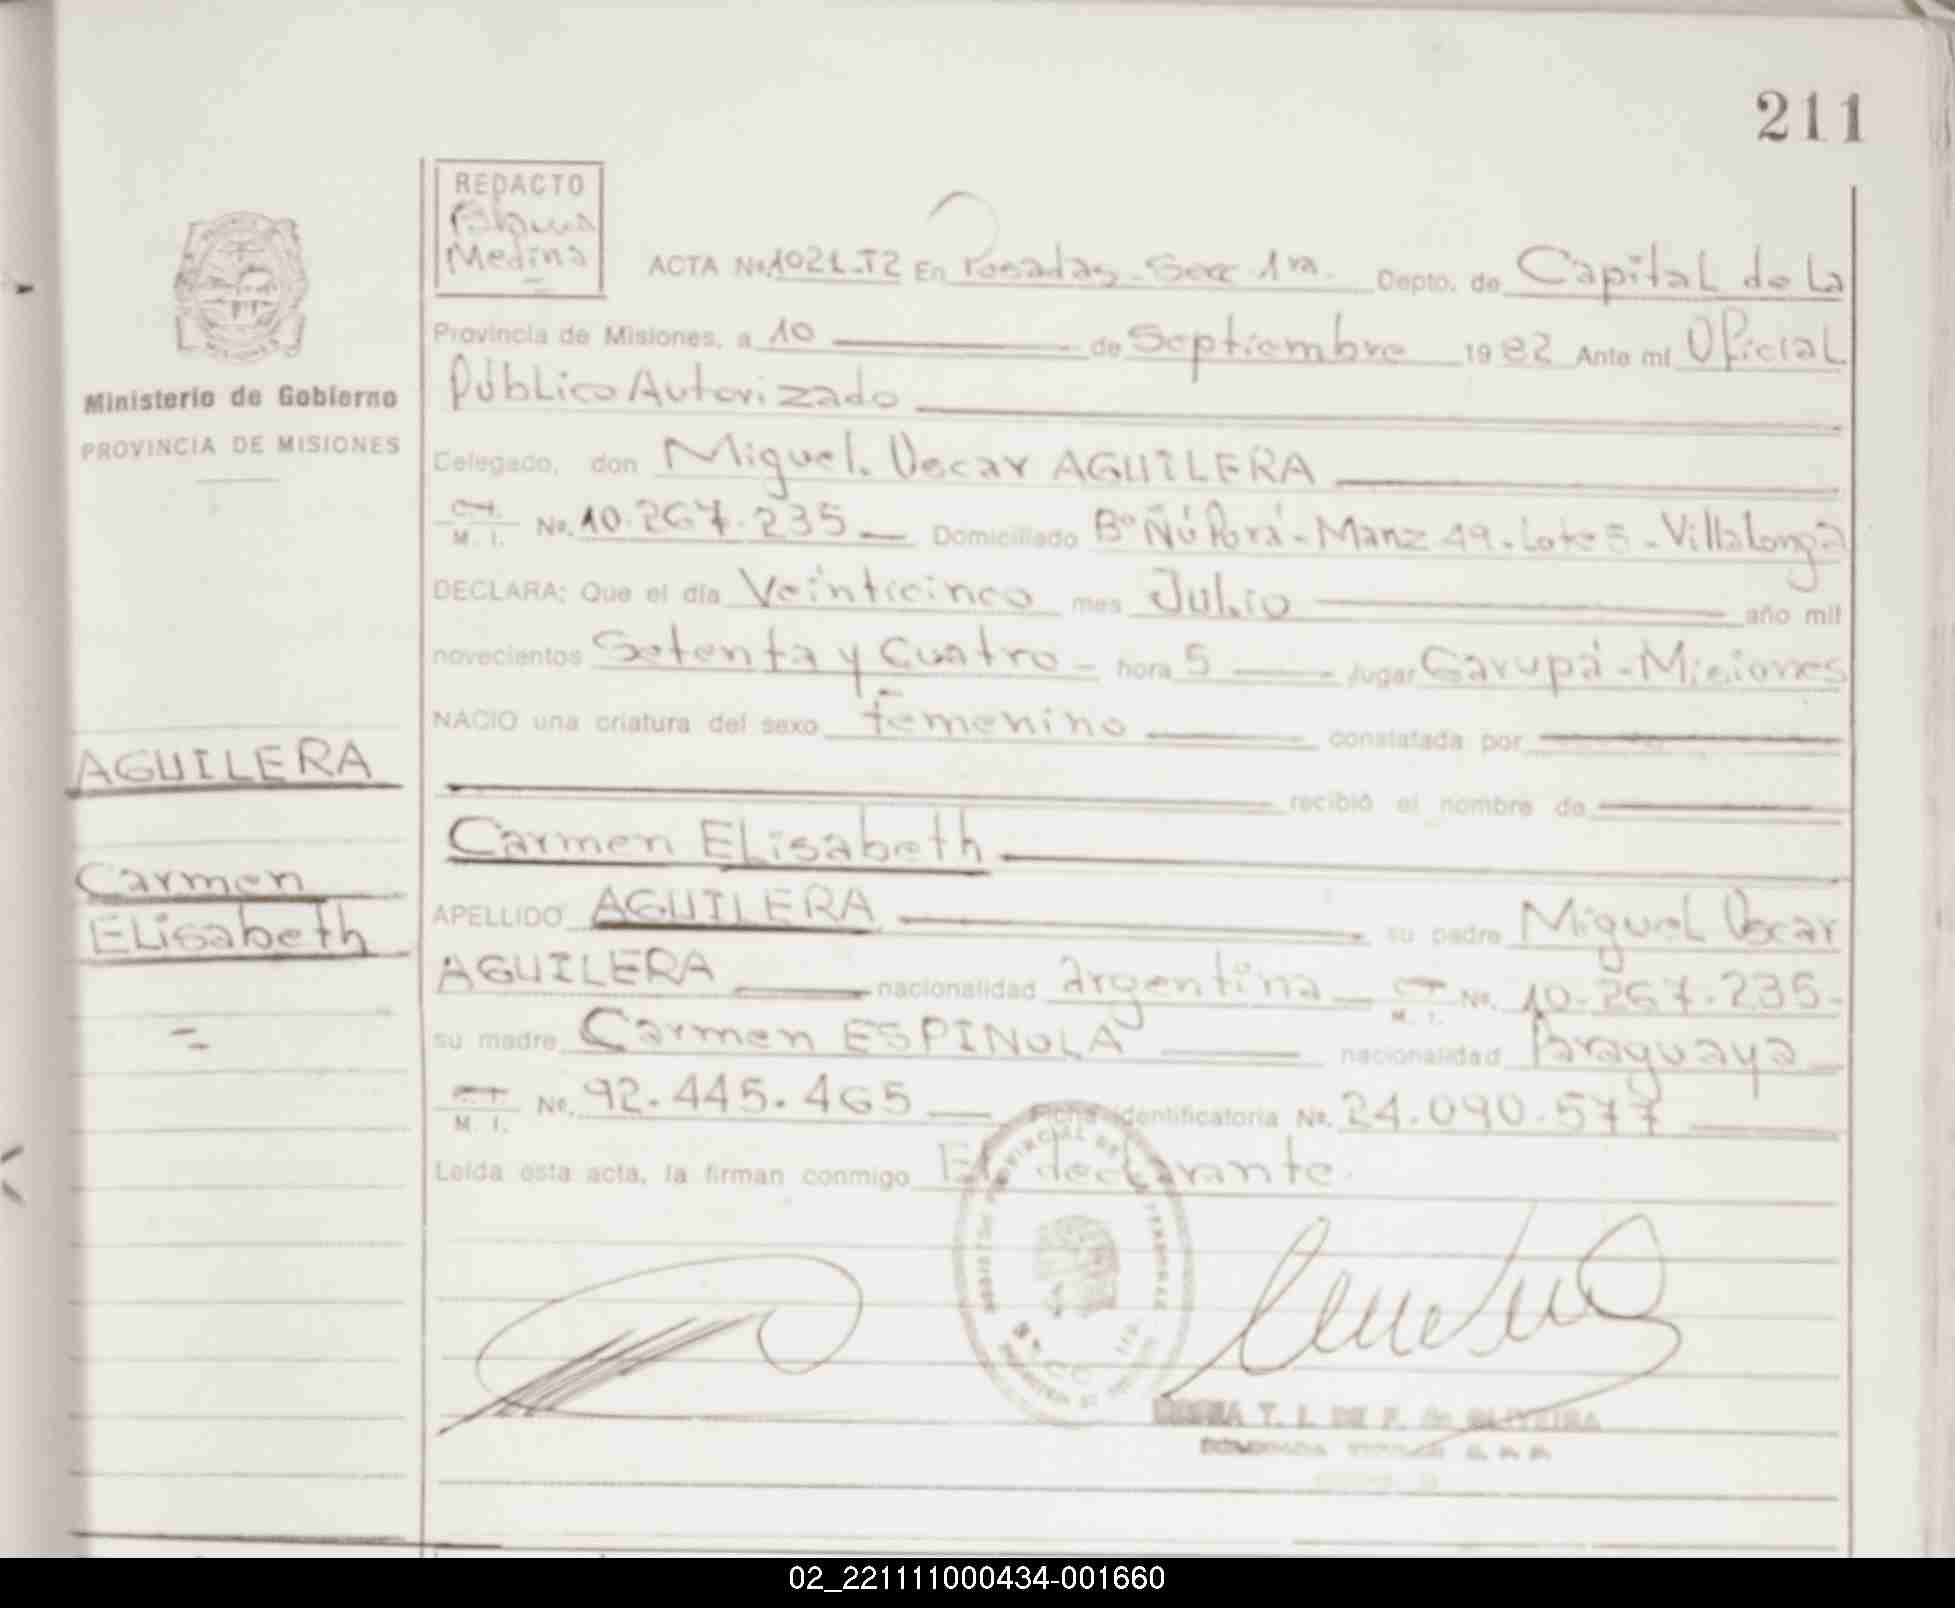 211
REDACTO
Medina
Ministerio de Gobierno
PROVINCIA DE MISIONES
ACTA No 1021-T2 En Posadas-Secc 1ra. Depto. de Capital de La
Provincia de Misiones, a 10 de Septiembre 1982 Ante mí Oficial
Público Autorizado
Delegado, don Miguel. Oscar AGUILERA
C.I. M. I. No. 10.267.235 Domiciliado Bº Ñú Porá-Manz 49-Lote 5-Villalonga
DECLARA: Que el día Veinticinco mes Julio año mil
novecientos Setenta y Cuatro - hora 5 lugar Garupá-Misiones
NACIO una criatura del sexo femenino constatada por
recibió el nombre de
Carmen ELisabeth
APELLIDO AGUILERA su padre Miguel Oscar
AGUILERA nacionalidad argentina C.I. M. I. No. 10.267.235-
su madre Carmen ESPINOLA nacionalidad Paraguaya
C.I. M. I. No. 92.445.465 Ficha identificatoria No. 24.090.577
Leída esta acta, la firman conmigo El declarante.
AGUILERA
Carmen
ELisabeth
T. L. DE F. de OLIVEIRA
02_221111000434-001660